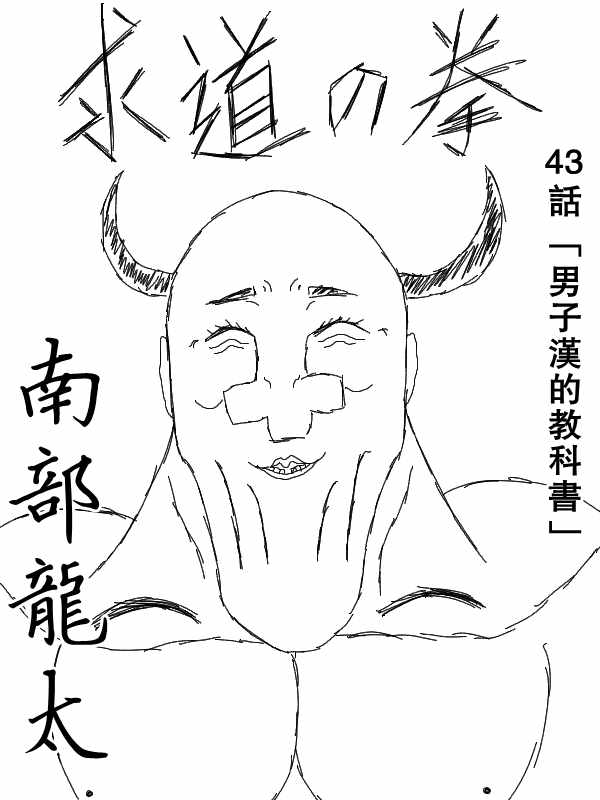 求道の拳
43話「男子漢的教科書」
南部龍太